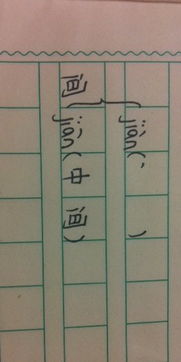 间
jiàn(　　)
jiān(中间)